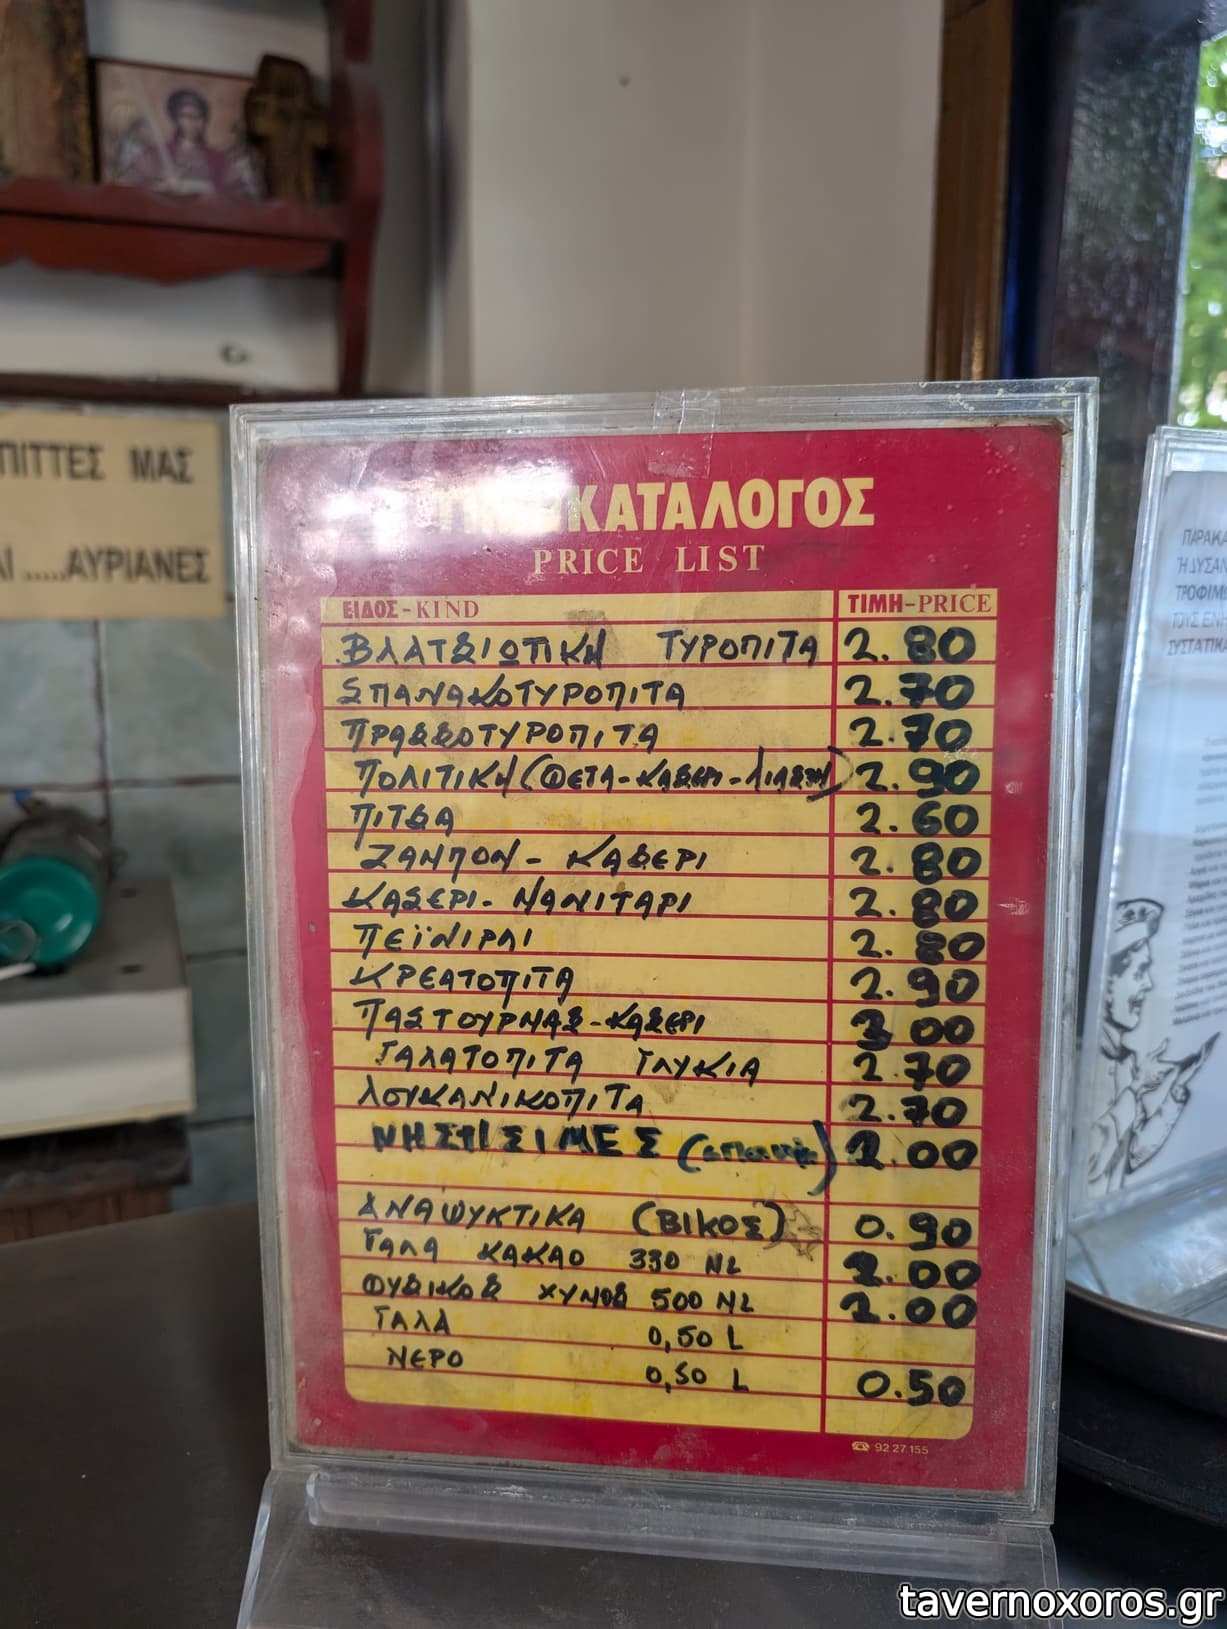 ΠΙΤΤΕΣ ΜΑΣ
ΑΙ .....ΑΥΡΙΑΝΕΣ
ΤΙΜΟΚΑΤΑΛΟΓΟΣ
PRICE LIST
ΕΙΔΟΣ-KIND ΤΙΜΗ-PRICE
ΒΛΑΤΣΙΩΤΙΚΗ ΤΥΡΟΠΙΤΑ 2.80
ΣΠΑΝΑΚΟΤΥΡΟΠΙΤΑ 2.70
ΠΡΑΣΣΟΤΥΡΟΠΙΤΑ 2.70
ΠΟΛΙΤΙΚΗ (ΦΕΤΑ-ΚΑΣΕΡΙ-ΛΙΑΣΤΗ) 2.90
ΠΙΤΣΑ 2.60
ΖΑΜΠΟΝ - ΚΑΣΕΡΙ 2.80
ΚΑΣΕΡΙ - ΜΑΝΙΤΑΡΙ 2.80
ΠΕΪΝΙΡΛΙ 2.80
ΚΡΕΑΤΟΠΙΤΑ 2.90
ΠΑΣΤΟΥΡΜΑΣ-ΚΑΣΕΡΙ 3.00
ΓΑΛΑΤΟΠΙΤΑ ΓΛΥΚΙΑ 2.70
ΛΟΥΚΑΝΙΚΟΠΙΤΑ 2.70
ΝΗΣΤΙΣΙΜΕΣ 2.00
ΑΝΑΨΥΚΤΙΚΑ (ΒΙΚΟΣ) 0.90
ΓΑΛΑ ΚΑΚΑΟ 330 ML 2.00
ΦΥΣΙΚΟΣ ΧΥΜΟΣ 500 ML 2.00
ΓΑΛΑ 0,50 L
ΝΕΡΟ 0,50 L 0.50
92 27 155
ΠΑΡΑΚΑ
Ή ΔΥΣΑΝ
ΤΡΟΦΙΜ
ΤΟΥΣ ΕΝΗ
ΣΥΣΤΑΤΙΚΑ
tavernoxoros.gr